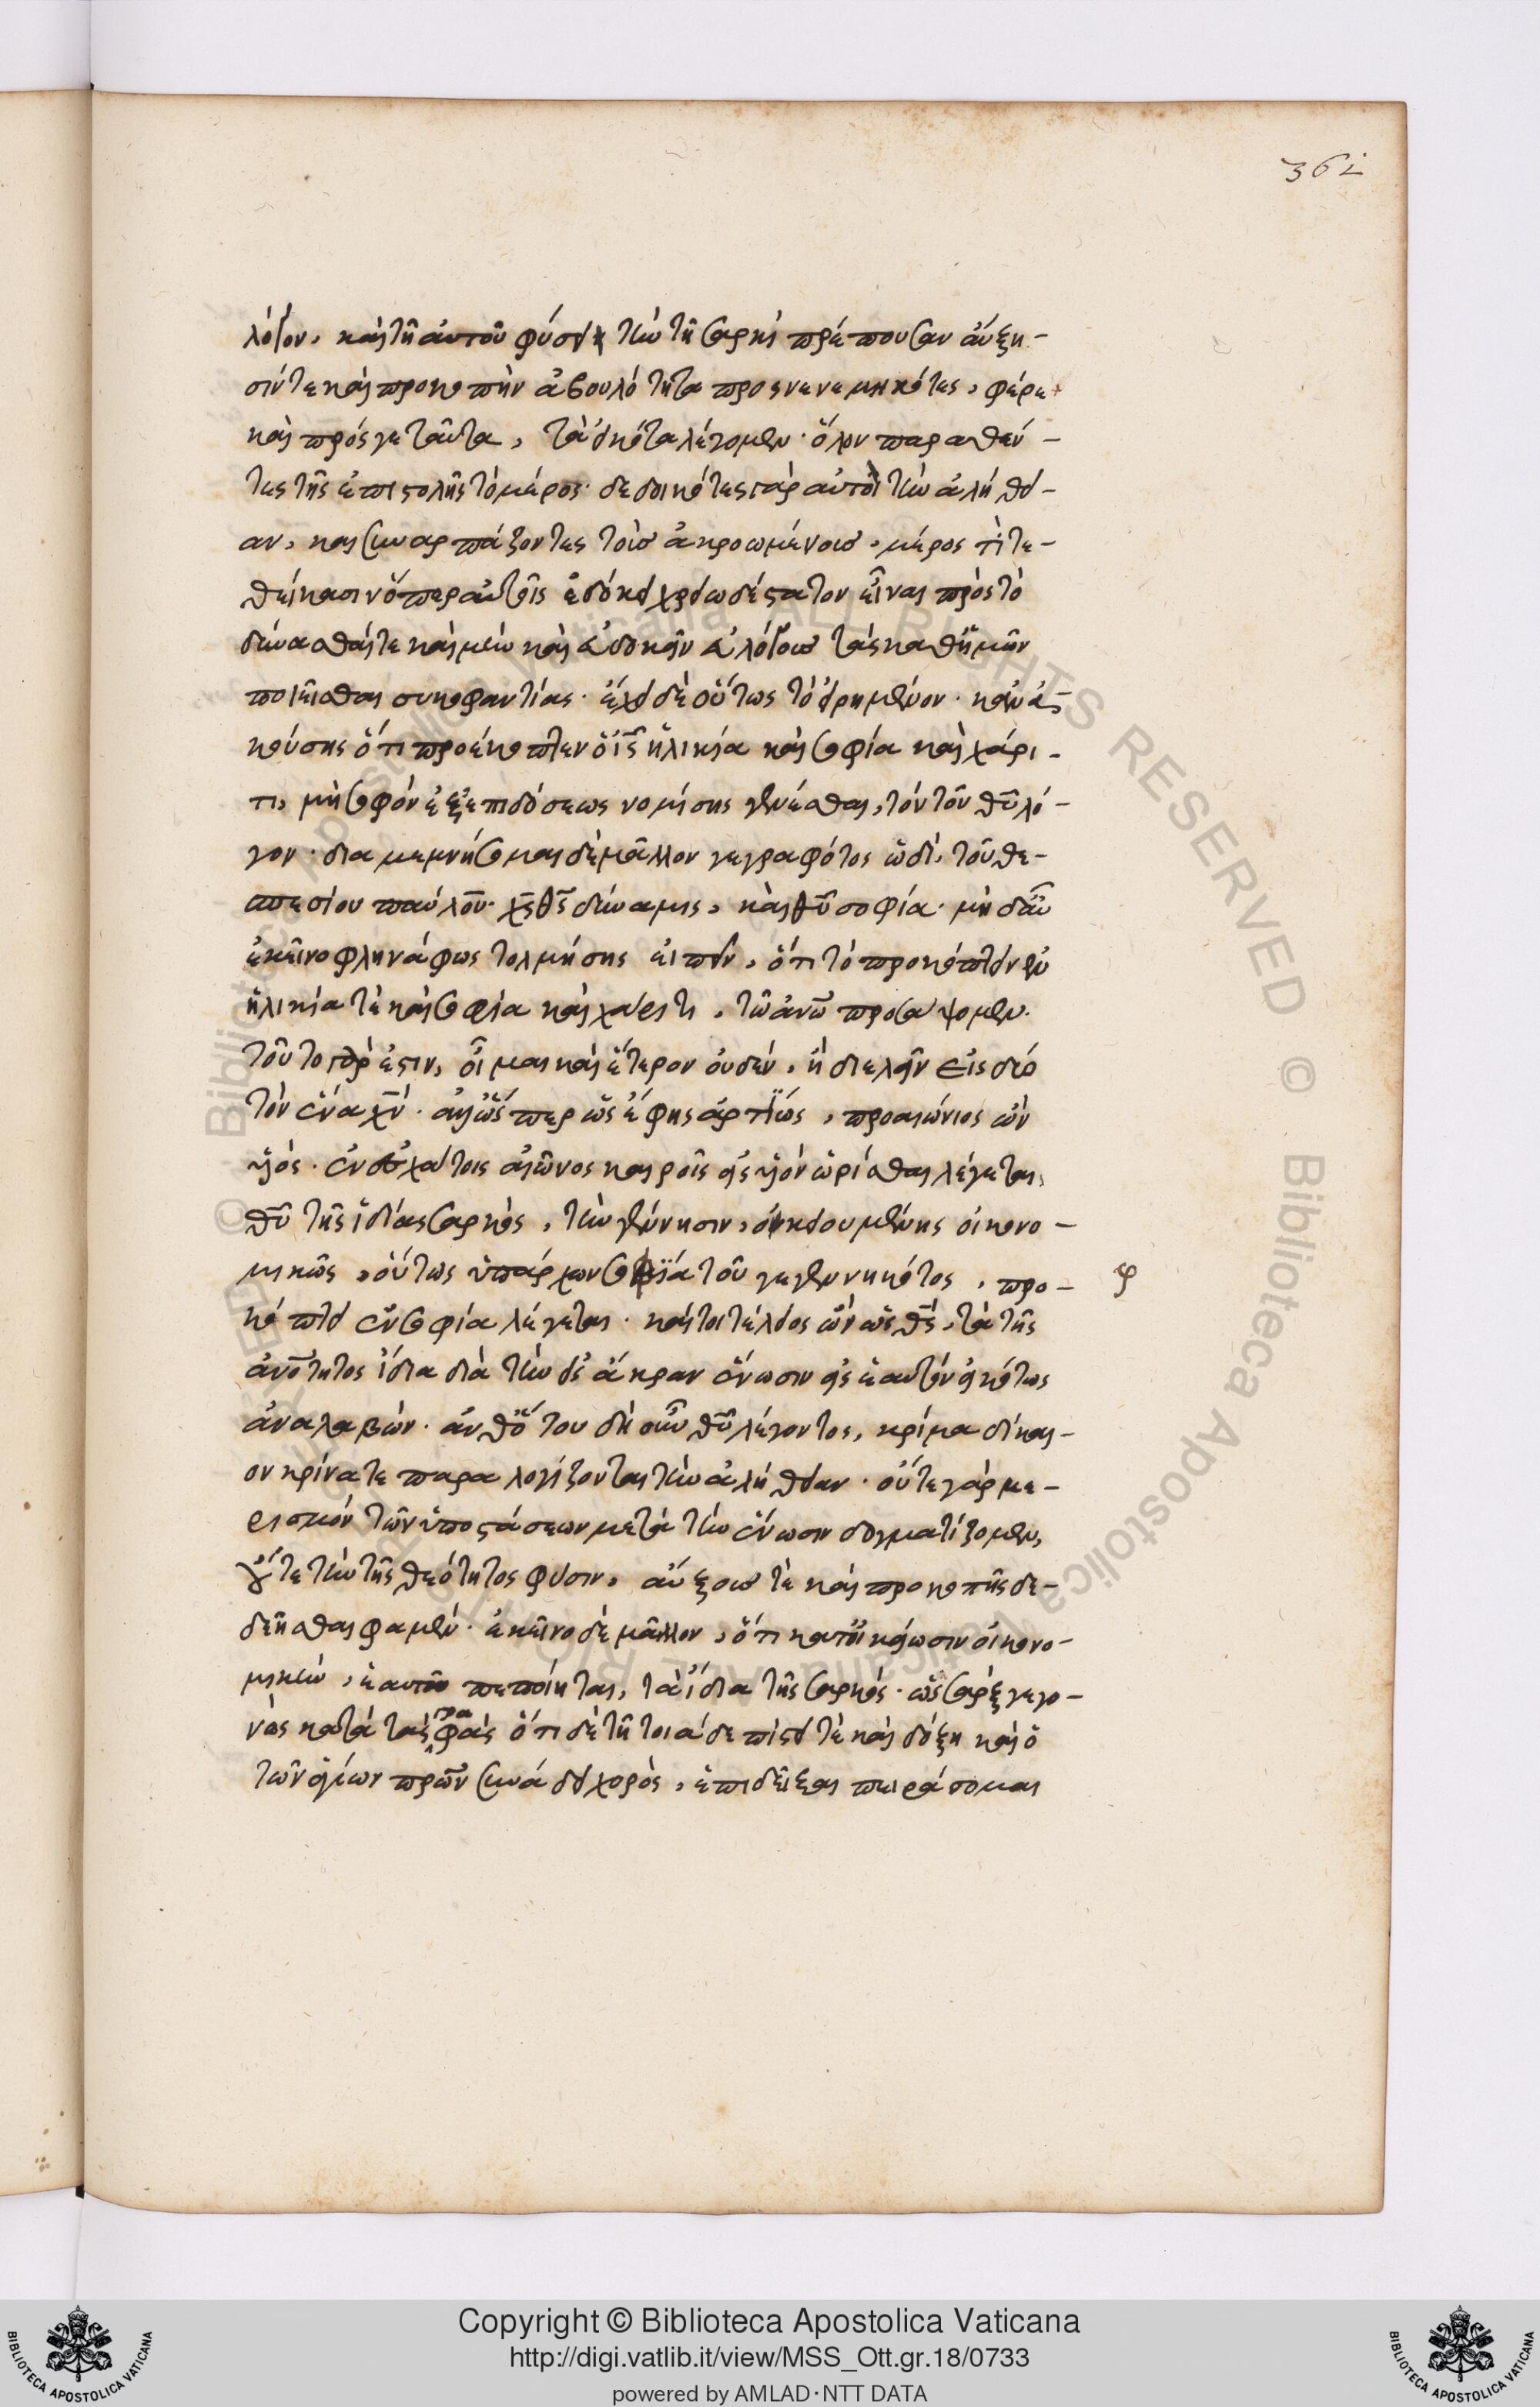 362
λόγον, καὶ τῇ αὐτοῦ φύσει τὴν τῇ σαρκὶ πρέπουσαν αὔξη-
σίν τε καὶ προκοπὴν ἀβουλότητα προσνενεμηκότες, φέρε
καὶ πρός γε ταῦτα, τὰ εἰκότα λέγομεν· ὅλον παραθέν-
τες τῆς ἐπιστολῆς τὸ μέρος· δεδοικότες γὰρ αὐτοὶ τὴν ἀλήθει-
αν, καὶ συναρπάζοντες τοὺς ἀκροωμένους, μέρος τι τε-
θείκασιν ὅπερ αὐτοῖς ἐδόκει χρειωδέστατον εἶναι πρὸς τὸ
δύνασθαί τε καὶ μὴν καὶ
ποιεῖσθαι συκοφαντίας· ἔχει δὲ οὕτως τὸ εἰρημένον· κἂν ἀ-
κούσῃς ὅτι προέκοπτεν ὁ ις ἡλικία καὶ σοφία καὶ χάρι-
τι, μὴ σοφὸν ἐξ ἐπιδόσεως νομίσῃς γενέσθαι, τὸν τοῦ θυ λό-
γον· διαμεμνήσομαι δὲ μᾶλλον γεγραφότος ὡδί, τοῦ θε-
σπεσίου παύλου· χς θυ δύναμις, καὶ θυ σοφία· μὴ δ' αὖ
ἐκεῖνο φληνάφως τολμήσῃς εἰπεῖν, ὅτι τὸ προκόπτειν ἐν
ἡλικία τὲ καὶ σοφία καὶ χάριτι, τῷ ανω προσάψομεν·
τοῦτο γάρ ἐστιν, οἶμαι καὶ ἕτερον οὐδέν, ἢ διελεῖν εἰς δύο
τὸν ἕνα χν· ἀλλ' ὥσπερ ὡς ἔφης ἀρτίως, προαιώνιος ὢν
υἱός· ἐν ἐσχάτοις αἰῶνος καιροῖς εἰς υἱὸν ὡρίσθαι λέγεται,
θυ τῆς ἰδίας σαρκὸς, τὴν γέννησιν, οἰκειουμένης οἰκονο-
μικῶς, οὕτως ὑπάρχων σοφία τοῦ γεγεννηκότος, προ-
φ
κόπτει ἐν σοφία λέγεται· καίτοι τέλειος ὢν ὡς θς, τὰ τῆς
ανοτητος ἴδια διὰ τὴν εἰς ἄκραν ἕνωσιν εἰς ἑαυτὸν εἰκότως
ἀναλαβών· ἀνθ' ὅτου δὴ οὖν θυ λέγοντος, κρίμα δίκαι-
ον κρίνατε παραλογίζονται τὴν ἀλήθειαν· οὔτε γὰρ με-
ρισμὸν τῶν ὑποστάσεων μετὰ τὴν ἕνωσιν δογματίζομεν,
οὔτε τὴν τῆς θεότητος φύσιν, αὔξους τὲ καὶ προκοπῆς δε-
δεῆσθαι φαμέν· ἐκεῖνο δὲ μᾶλλον, ὅτι κατ' οἰκείωσιν οἰκονο-
μικὴν, ἑαυτοῦ πεποίηται, τὰ ἴδια τῆς σαρκός· ὡς σὰρξ γεγο-
νὼς κατὰ τὰς γραφάς ὅτι δὲ τῇ τοιάδε πίστει τὲ καὶ δόξη καὶ ὁ
τῶν ἁγίων πρων συνάδει χορὸς, ἐπιδεῖξαι πειράσομαι
Copyright © Biblioteca Apostolica Vaticana
http://digi.vatlib.it/view/MSS_Ott.gr.18/0733
powered by AMLAD·NTT DATA